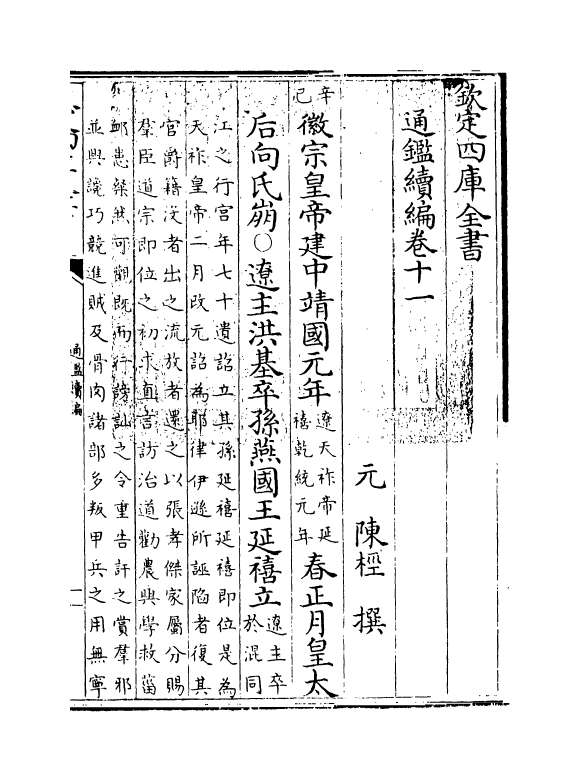 欽定四庫全書
通鑑續編卷十一
元 陳桱 撰
辛巳徽宗皇帝建中靖國元年遼天祚帝延禧乾統元年春正月皇太
后向氏崩○遼主洪基卒孫燕國王延禧立遼主卒於混同
江之行宫年七十遺詔立其孫延禧延禧即位是為
天祚皇帝二月改元詔為耶律伊遜所誣陷者復其
官爵籍没者出之流放者還之以張孝傑家屬分賜
羣臣道宗即位之初求直言訪治道勸農興學救菑
䘏患粲然可觀既而行謗訕之令重告訐之賞羣邪
並興讒巧競進賊及骨肉諸部多叛甲兵之用無寧
通鑑續編
一